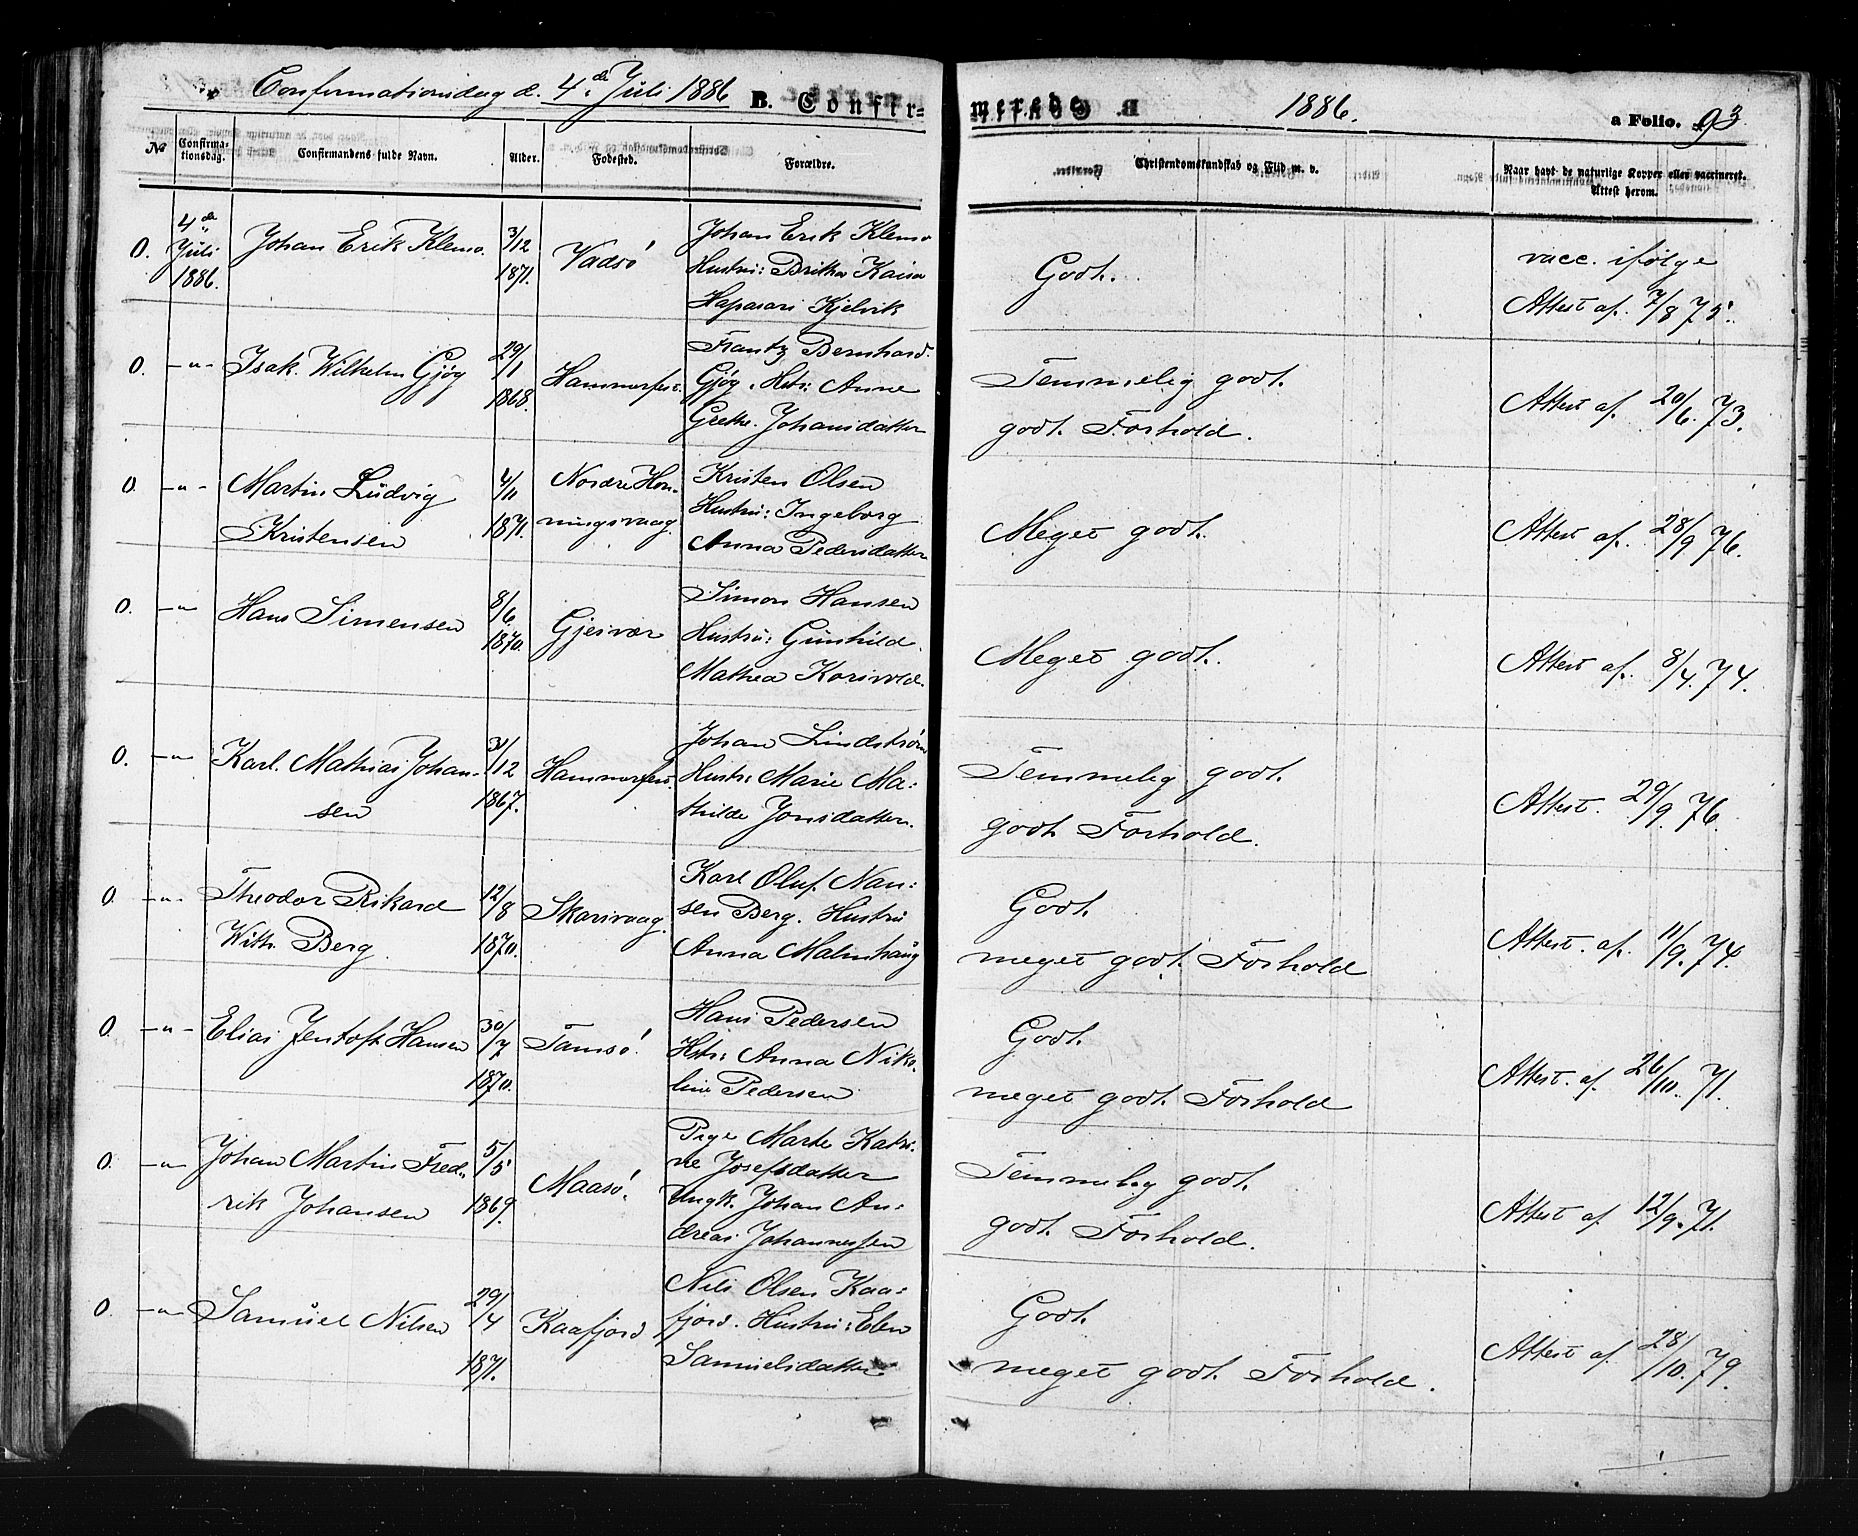 Confirmationsdag d. 4de Juli 1886 B. Confir=
merede 1886. a Folio. 93
No Confirma-tionsdag. Confirmandens fulde Navn. Alder. Fødested. Forældre. Christendomskundskab og Flid m. v. Naar havt de naturlige Kopper eller vaccineret. Attest herom.
0. 4de Juli 1886. Johan Erik Klemo. 3/12 1871. Vadsö Johan Erik Klemo
Hustru: Brita Kaisa
Hapasari Kjelvik
Godt.
vacc. ifølge
Attest af. 7/8 75.
0. -"- Isak. Wilhelm Gjøg 29/1 1868. Hammerfest Frantz Bernhard.
Gjøg. Hst: Anne
Grethe. Johansdatter
Temmelig godt.
godt. Forhold.
Attest af. 20/6. 73.
0. -"- Martin Ludvig
Kristensen
4/11 1871. Nordre Hon-
ningsvaag.
Kristen Olsen
Hustru: Ingeborg
Anna Pedersdatter
Meget godt.
Attest af. 28/9 76.
0. -"- Hans Simensen 8/6. 1870. Gjesvær Simon Hansen
Hustru: Gunhild.
Mathea Korsvold.
Meget godt.
Attest af. 8/4. 74.
0. -"- Karl. Mathias Johan-
sen
31/12 1867. Hammerfest. Johan Lindstrøm
Hustr: Marie Ma=
thilde Jonsdatter.
Temmelig godt.
godt Forhold.
Attest. 29/9. 76.
0. -"- Theodor Rikard
Wilh. Berg.
12/8 1870. Skarsvaag. Karl Oluf. Nan=
sen Berg. Hustru
Anna Malmhaug
Godt.
meget godt. Forhold
Attest. af. 11/9. 74.
0. -"- Elias Jentoft Hansen 30/7 1870. Tamsö. Hans Pedersen
Hst: Anna Niko-
line Pedersen
Godt.
meget godt. Forhold
Attest. af. 26/10. 71.
0. -"- Johan Martin Fred-
rik Johansen
5/5 1869. Maasö. Pige Marte Katri-
ne Josefsdatter
Ungk. Johan An=
dreas Johannessen
Temmelig godt.
godt. Forhold.
Attest af. 12/9. 71.
0. -"- Samüel Nilsen 29/4 1871. Kaafjord Nils Olsen Kaa=
fjord. Hustru: Elen
Samuelsdatter
Godt.
meget godt. Forhold.
Attest af. 28/10. 79.